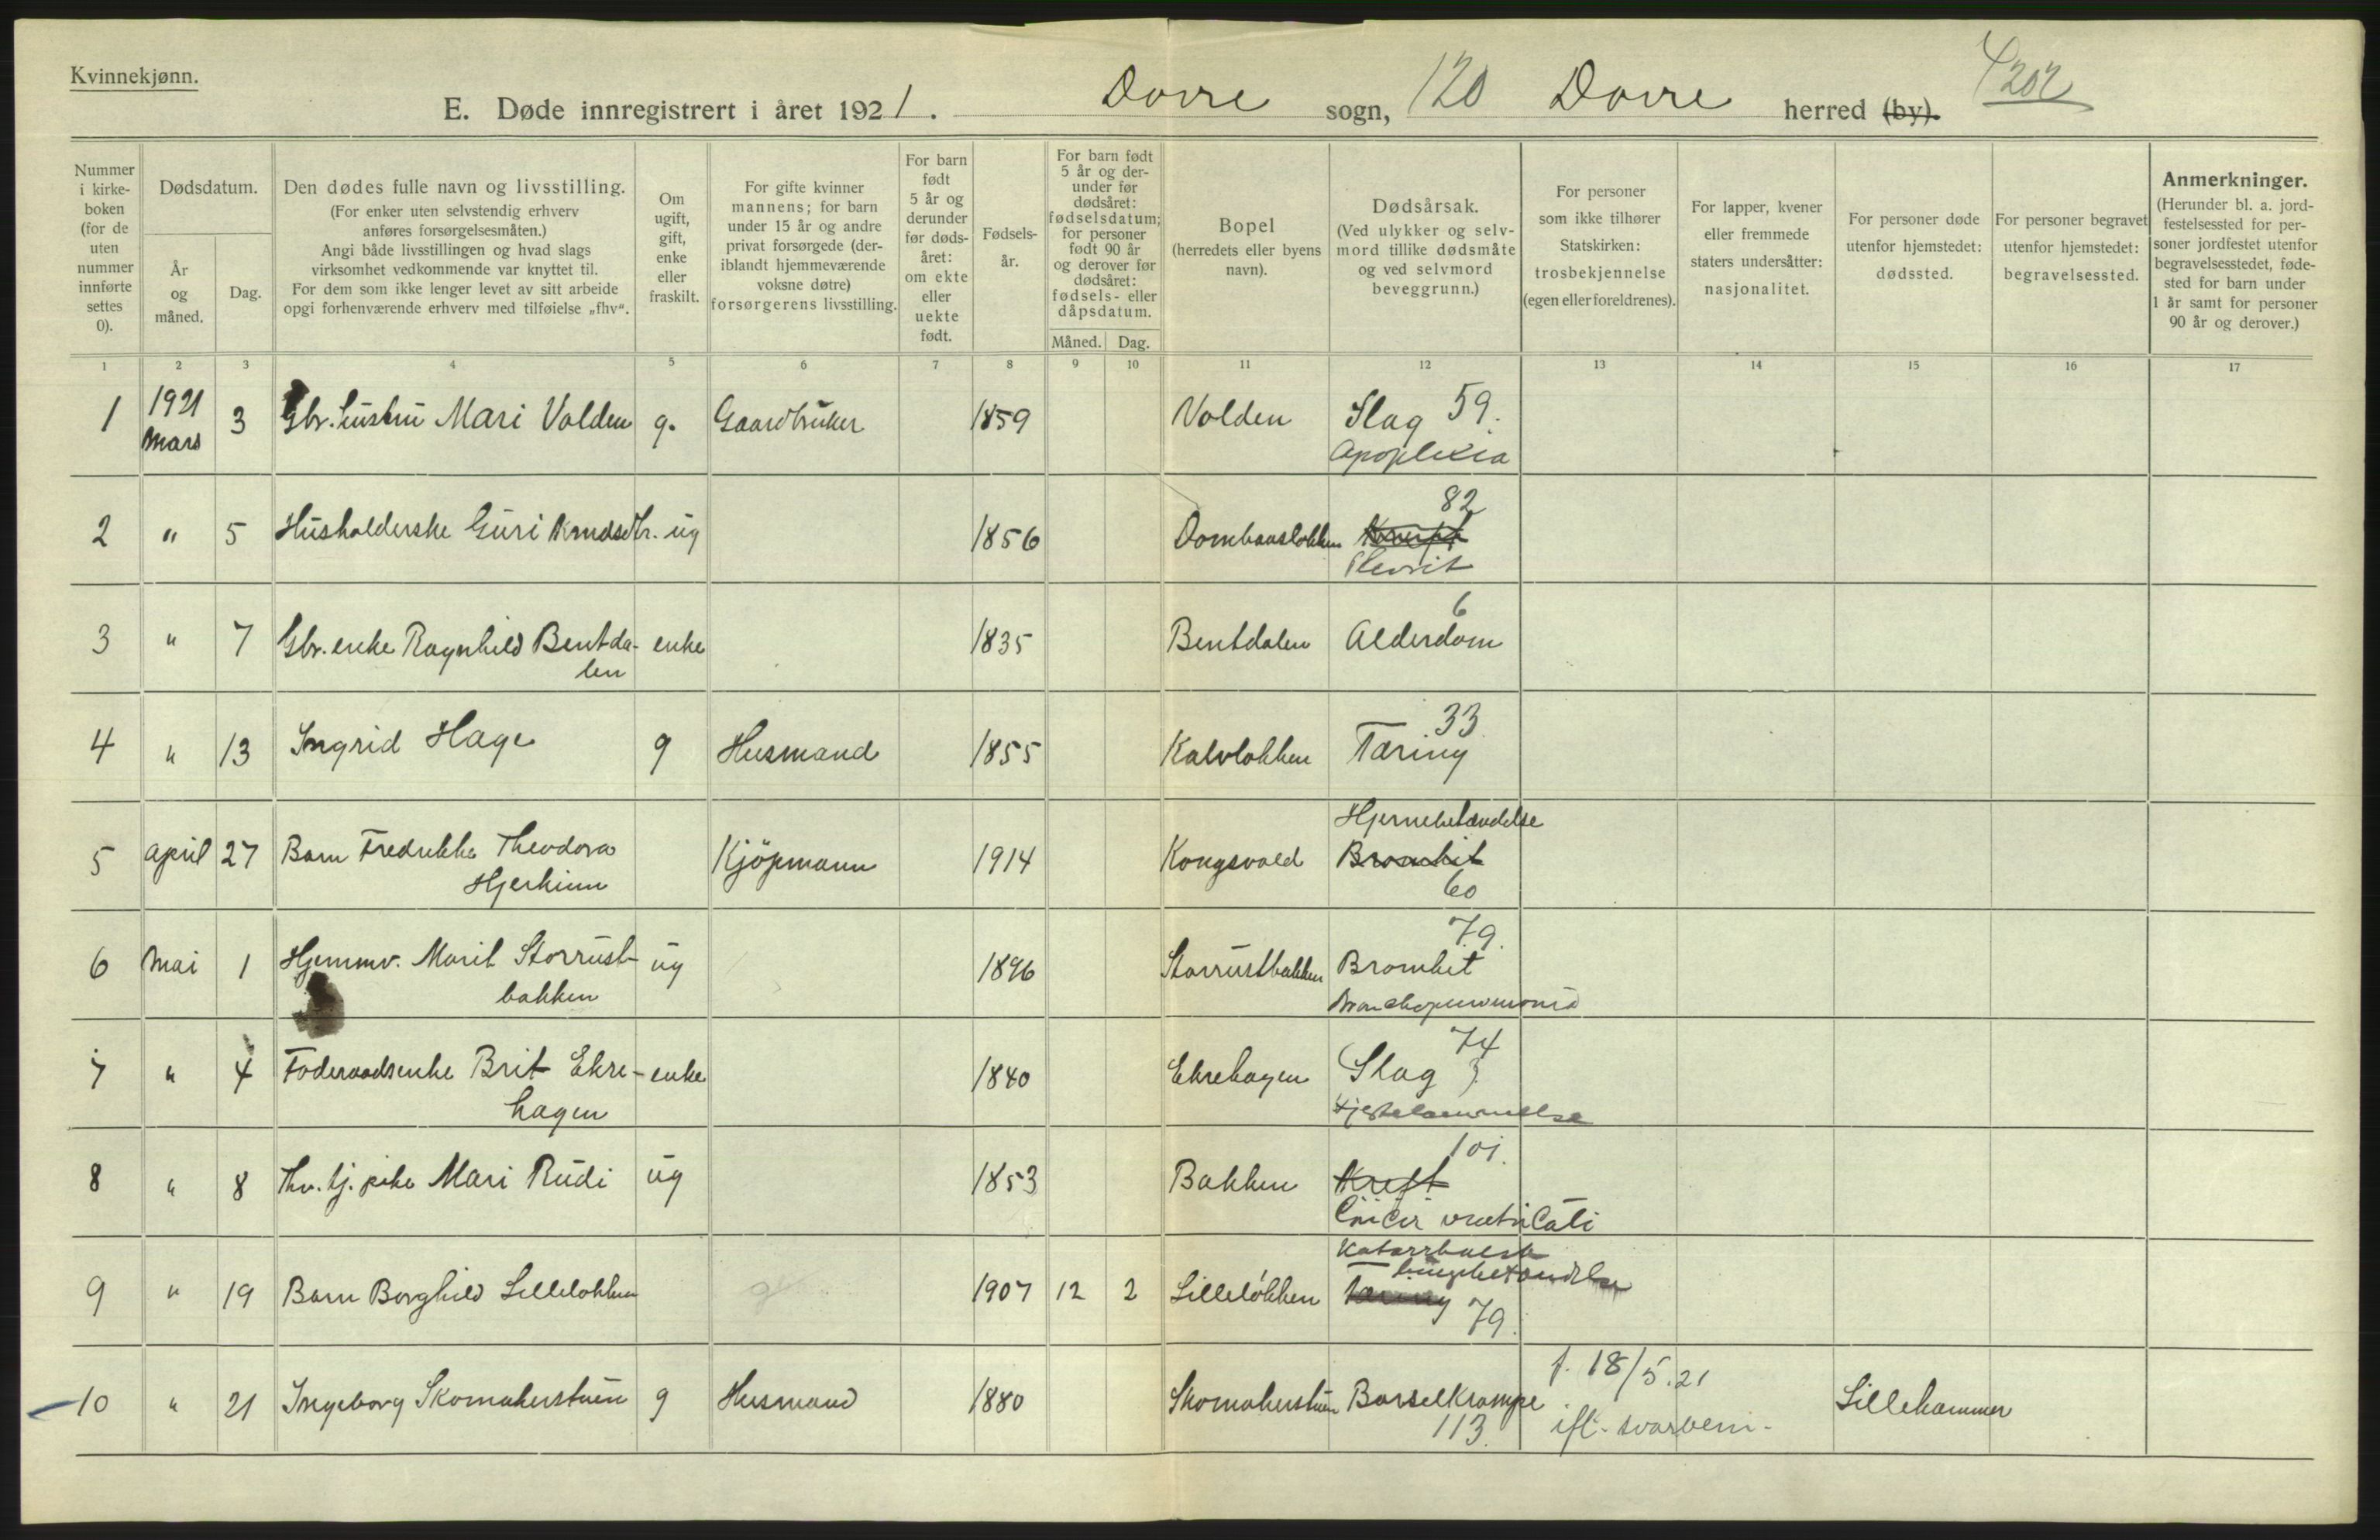 Kvinnekjønn.
E. Døde innregistrert i året 1921. Dovre sogn, 120 Dovre herred (by). 4202
Nummer i kirke-boken (for de uten nummer innførte settes 0).
Dødsdatum.
År og måned.
Dag.
Den dødes fulle navn og livsstilling.
(For enker uten selvstendig erhverv anføres forsørgelsesmåten.)
Angi både livsstillingen og hvad slags virksomhet vedkommende var knyttet til.
For dem som ikke lenger levet av sitt arbeide opgi forhenværende erhverv med tilføielse „fhv“.
Om ugift, gift, enke eller fraskilt.
For gifte kvinner mannens; for barn under 15 år og andre privat forsørgede (deriblandt hjemmeværende voksne døtre) forsørgerens livsstilling.
For barn født 5 år og derunder før dødsåret: om ekte eller uekte født.
Fødsels-år.
For barn født 5 år og derunder før dødsåret: fødselsdatum; for personer født 90 år og derover før dødsåret: fødsels- eller dåpsdatum.
Måned.
Dag.
Bopel (herredets eller byens navn).
Dødsårsak.
(Ved ulykker og selvmord tillike dødsmåte og ved selvmord beveggrunn.)
For personer som ikke tilhører Statskirken: trosbekjennelse (egen eller foreldrenes).
For lapper, kvener eller fremmede staters undersåtter: nasjonalitet.
For personer døde utenfor hjemstedet: dødssted.
For personer begravet utenfor hjemstedet: begravelsessted.
Anmerkninger.
(Herunder bl. a. jordfestelsessted for personer jordfestet utenfor begravelsesstedet, fødested for barn under 1 år samt for personer 90 år og derover.)
1 2 3 4 5 6 7 8 9 10 11 12 13 14 15 16 17
1 1921 Mars 3 Gbr. hustru Mari Volden g. Gaardbruker 1859 Volden Slag 59.
Apoplexia
2 " 5 Husholderske Guri Knudsdtr. ug 1856 Dombaasløkken 82
Plevrit
3 " 7 Gbr. enke Ragnhild Bentda- enke 1835 Bentdalen Alderdom 6
len
4 " 13 Ingrid Hage g Husmand 1855 Kalvløkken Tæring 33
5 April 27 Barn Fredrikke Theodora Kjöpmann 1914 Kongsvold Hjernebetændelse
Hjerkinn Bronkit
60
6 Mai 1 Hjemmv. Marit Storrust- ug 1896 Storrustbakken Bronkit 79.
bakken Bronchopneumonia
7 " 4 Føderaadsenke Brit Ekre- enke 1840 Ekrehagen Slag 74
hagen Hjertelammelse
8 " 8 Fhv. tj. pike Mari Rudi ug 1853 Bakken Kreft 101.
Cancer ventriculi
9 " 19 Barn Borghild Lilleløkken 1907 12 2 Lilleløkken Katarrhalsk
lungebetændelse
Tæring 79.
10 " 21 Ingeborg Skomakerstuen g Husmand 1880 Skomakerstuen Barselkrampe f. 18/5.21 Lillehammer
113. ifl.